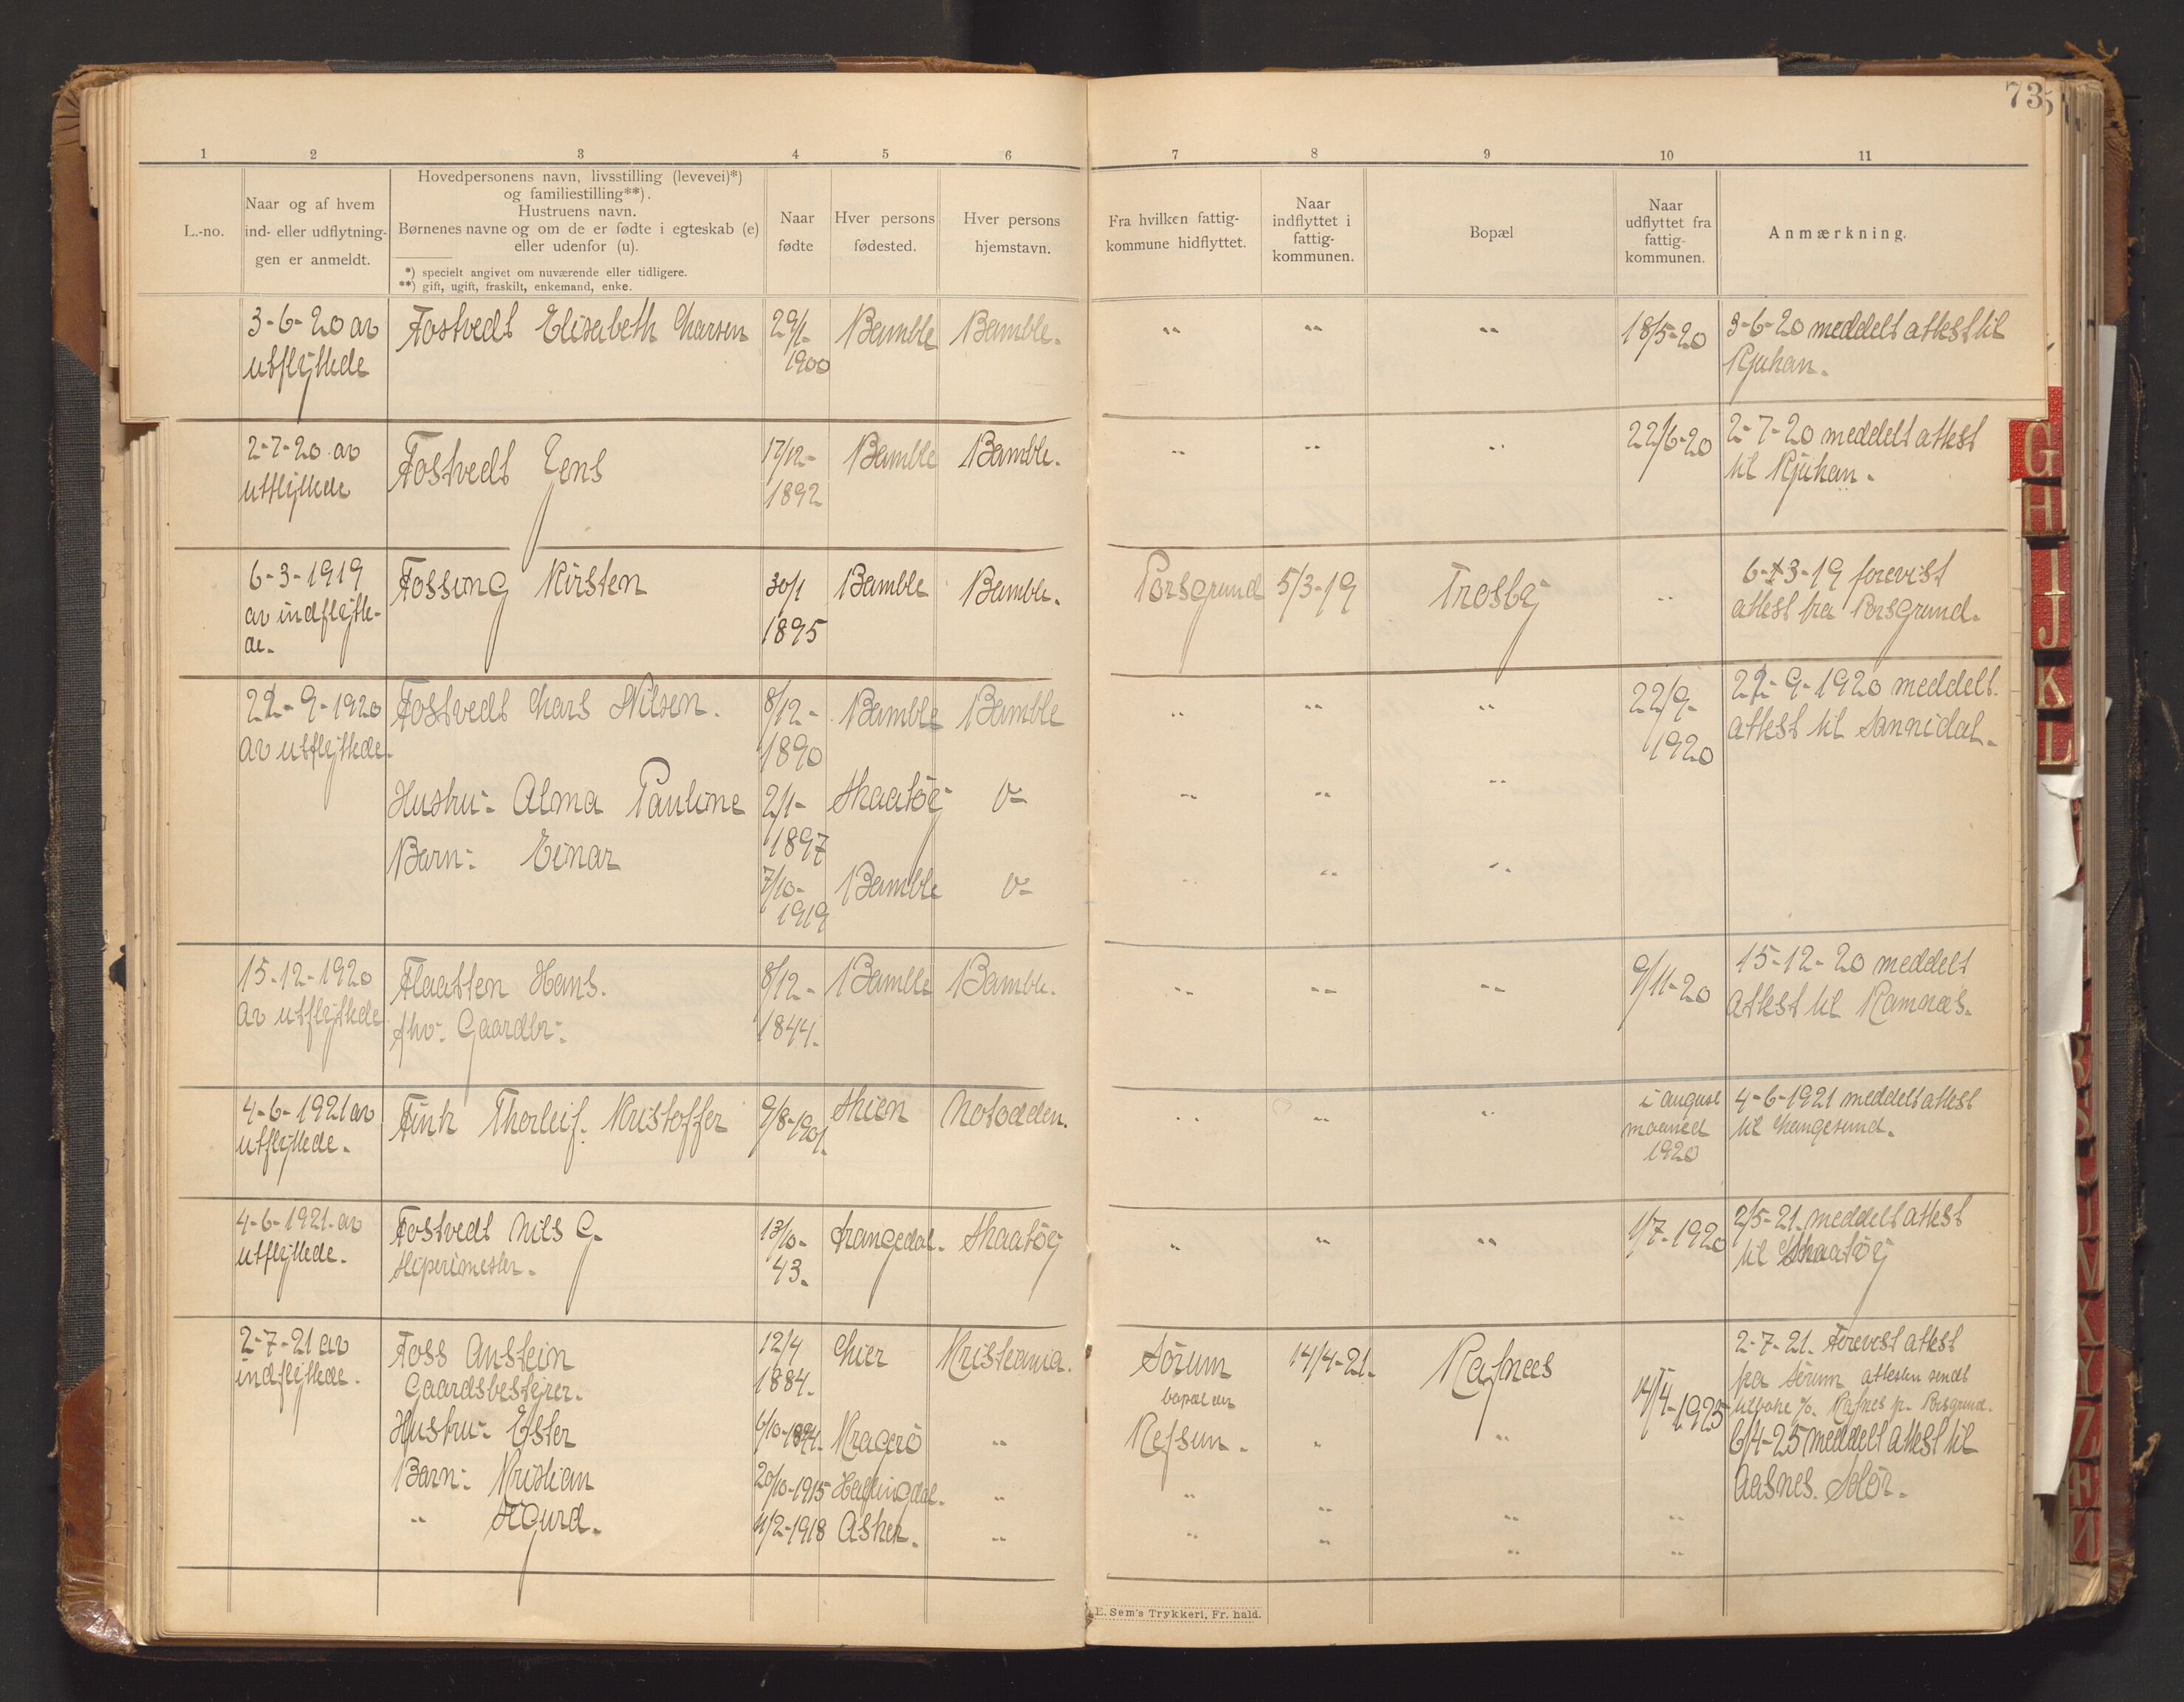 73
1 2 3 4 5 6 7 8 9 10 11
L.-no.
Naar og af hvem
ind- eller udflytning-
gen er anmeldt.
Hovedpersonens navn, livsstilling (levevei)*)
og familiestilling**).
Hustruens navn.
Børnenes navne og om de er fødte i egteskab (e)
eller udenfor (u).
*) specielt angivet om nuværende eller tidligere.
**) gift, ugift, fraskilt, enkemand, enke.
Naar
fødte
Hver persons
fødested.
Hver persons
hjemstavn.
Fra hvilken fattig-
kommune hidflyttet.
Naar
indflyttet i
fattig-
kommunen.
Bopæl
Naar
udflyttet fra
fattig-
kommunen.
Anmærkning.
3-6-20 av Fostvedt Elisabeth Larsen 29/1- Bamble Bamble. " " " 18/5-20 3-6-20 meddelt attest til
utflyttede 1900 Rjukan.
2-7-20 av Fostvedt Jens 17/12- Bamble Bamble. " " " 22/6-20 2-7-20 meddelt attest
utflyttede 1892 til Rjukan.
6-3-1919 Fossing Kirsten 30/1 Bamble Bamble. Porsgrund 5/3-19 Trosby " 6-3-19 forevist
av indflytte- 1895 attest fra Porsgrund.
de.
22-9-1920 Fostvedt Lars Nilsen. 8/12- Bamble Bamble " " " 22/9- 22-9-1920 meddelt
av utflyttede. 1890 1920 attest til Sannidal.
Hustru: Alma Pauline 2/1- Skaatöy " " "
1897
Barn: Einar 7/10- Bamble " " "
1919
15-12-1920 Flaatten Hans. 8/12- Bamble Bamble. " " " 9/11-20 15-12-20 meddelt
av utflyttede fhv. Gaardbr. 1844. attest til Ramnes.
4-6-1921 av Fink Thorleif Kristoffer 9/8-1901. Skien Notodden. " " " i august 4-6-1921 meddelt attest
utflyttede. maaned til Langesund.
1920
4-6-1921. av Fostvedt Nils G. 13/10- Drangedal. Skaatöy " " " 1/7-1920 2/5-21. meddelt attest
utflyttede. Sliperimester. 43. til Skaatöy
2-7-21 av Foss Anstein 12/4 Lier Kristiania. Sörum 14/4-21. Rafnes 14/4-1925 2-7-21. Forevist attest
indflyttede. Gaardsbestyrer. 1884. fra Sörum attesten sendt
tilbake Rafnes pr. Porsgrund.
Hustru: Ester 6/10-1894. Kragerö " Refsun. " " 6/4-25 meddelt attest til
Barn: Kristian 20/10-1915 Hallingdal. " " " " " Aasnes. Solör.
" Sigurd. 4/2-1918 Asker. " " " " "
E. Sem's Trykkeri, Fr. hald.
G
H
I
J
K
L